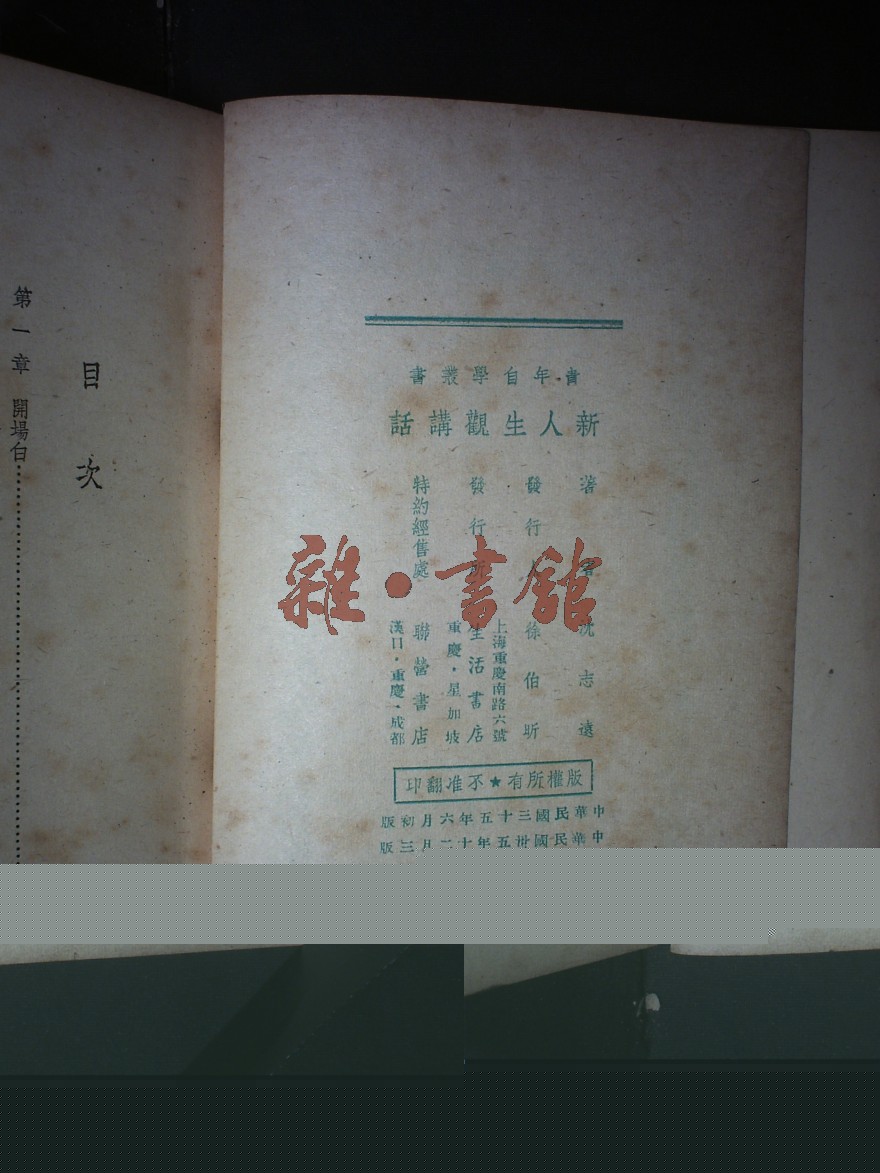 青年自學叢書
新人生觀講話
著者 沈志遠
發行人 徐伯昕
發行所 生活書店
上海重慶南路六號
重慶・星加坡
特約經售處 聯營書店
漢口・重慶・成都
版權所有★不准翻印
中華民國三十五年六月初版
中華民國卅五年十二月三版
目次
第一章 開場白
雜・書館